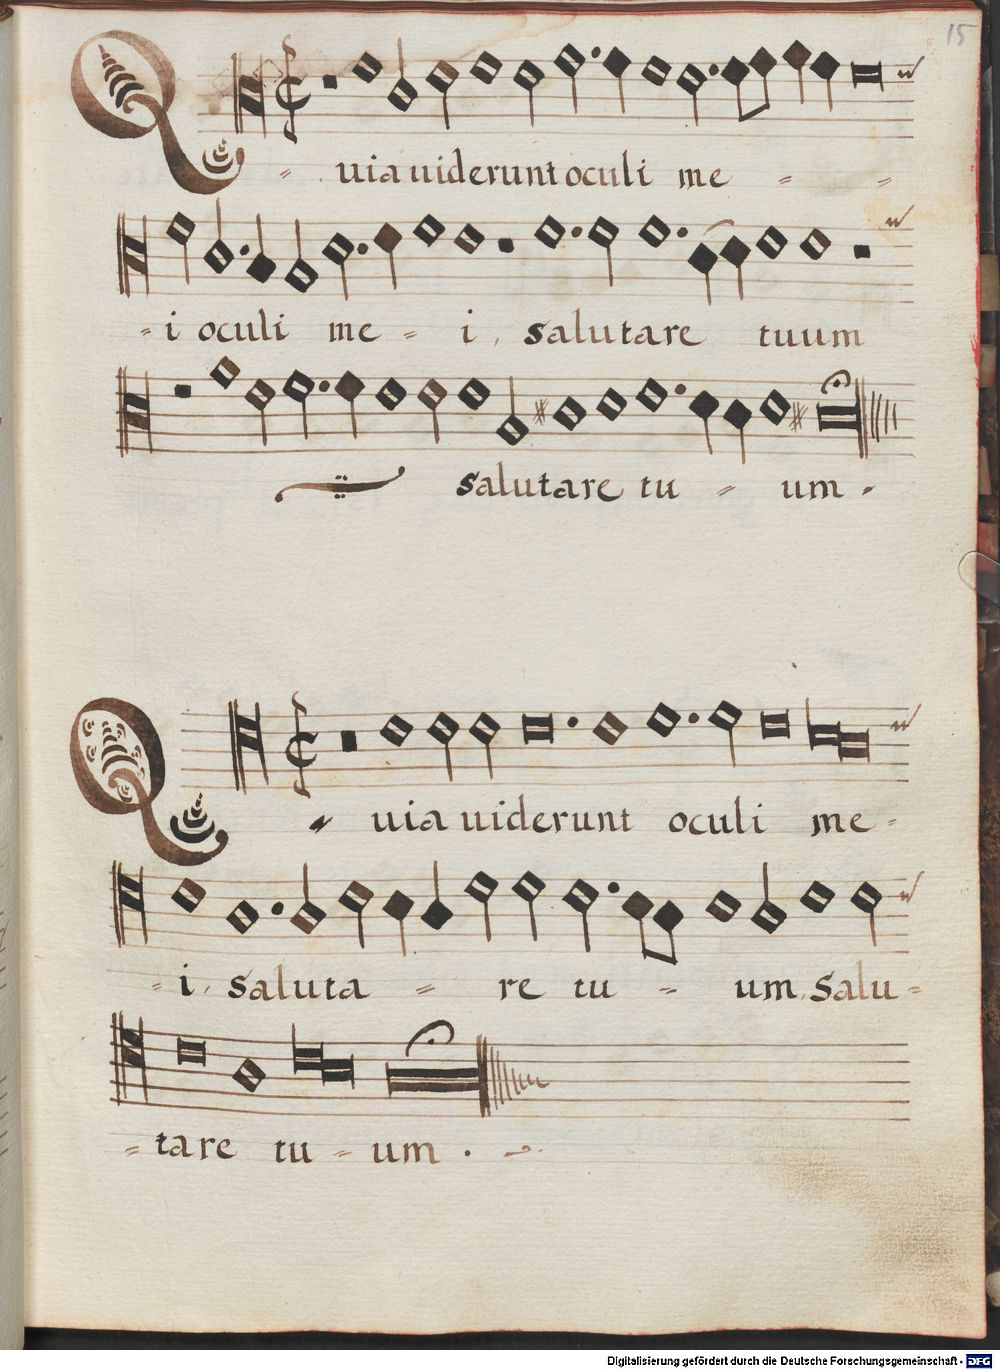 15
Quia uiderunt oculi me - -
- i oculi me - i, salutare tuum
salutare tu - um.
Quia uiderunt oculi me -
- i. saluta - re tu - um, salu -
- tare tu - um.
Digitalisierung gefördert durch die Deutsche Forschungsgemeinschaft - DFG